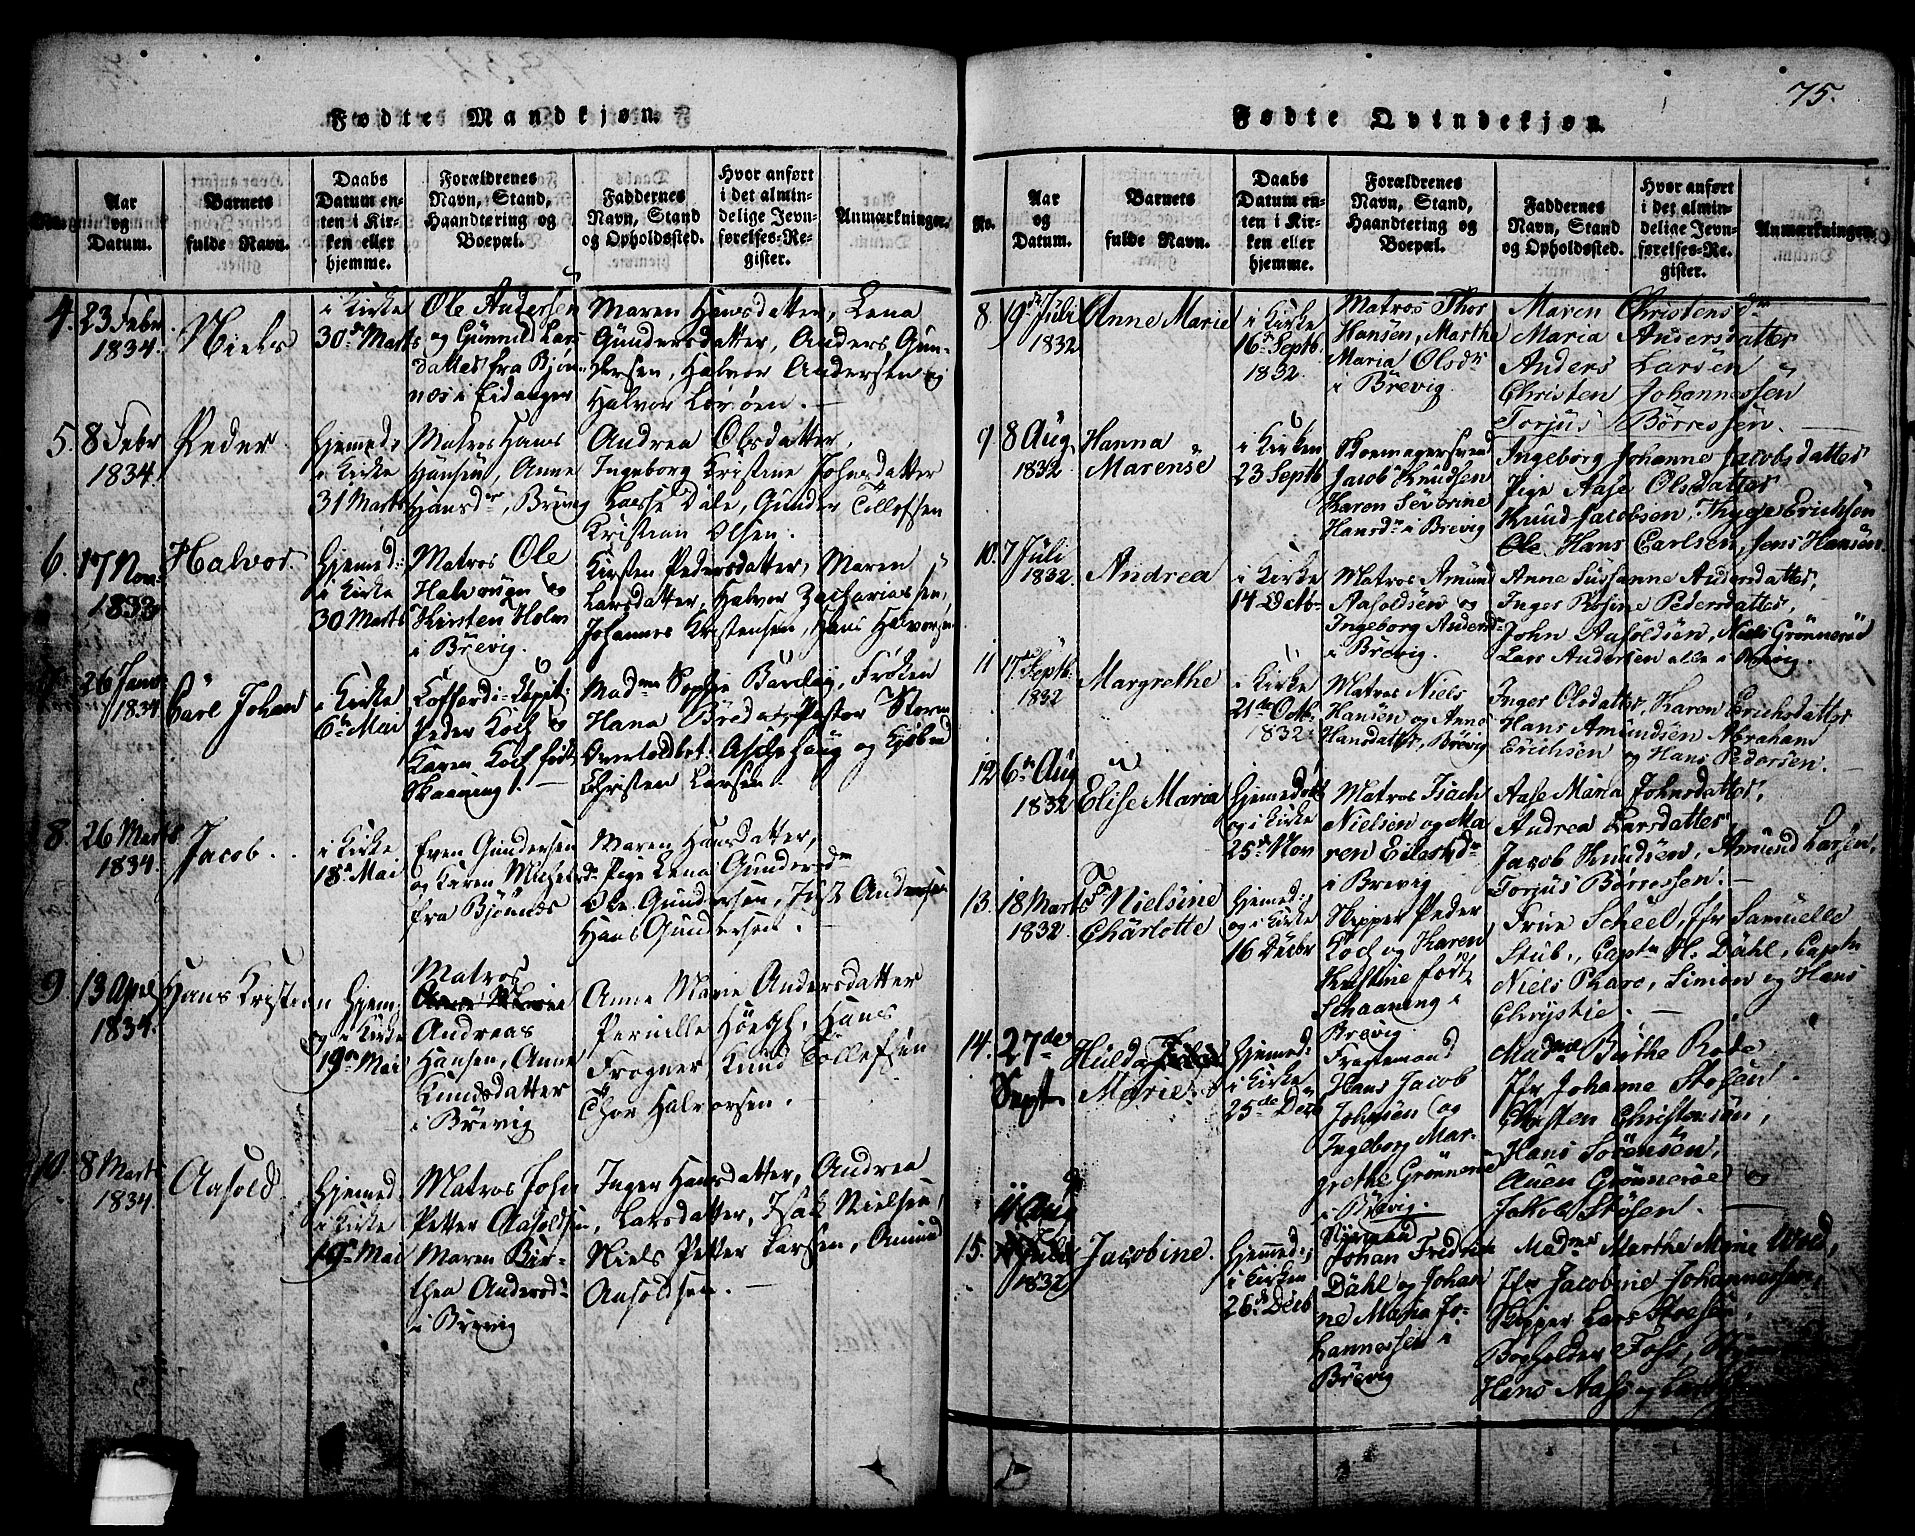 75.
Fødte Mandkjøn.
No.
Aar og Datum.
Barnets fulde Navn.
Daabs Datum enten i Kirken eller hjemme.
Forældrenes Navn, Stand, Haandtering og Boepæl.
Faddernes Navn, Stand og Opholdssted.
Hvor anført i det almindelige Jevnførelses-Register.
Anmærkninger.
4. 23 Febr. 1834.
Niels
i Kirke
30de Marts
Ole Andersen
og Gunnild Lars
datter fra Bjøn
nes i Eidanger
Maren Hansdatter, Lena
Gundersdatter, Anders Gun-
dersen, Halvor Andersen og
Halvor
5. 8 Febr 1834
Peder
Hjemed:
i Kirke
31 Marts
Matros Hans
Hansen, Anne
Hansdr, Brevig
Andrea Olsdatter,
Ingeborg Kristine Johnsdatter
Lasse Dale, Gunder Tollefsen
Kristian Olsen.
6. 17 Nov. 1833
Halvor
Hjemed:
i Kirke
30 Marts
Matros Ole
Halvorsen og
Kirsten Holm
i Brevig.
Kirsten Pedersdatter, Maren
Larsdatter, Halvor Zachariassen,
Johannes Kristensen, Hans Halvorsen
26 Janu 1834
Carl Johan
i Kirke
6te Mai
Coffardi-Capit:
Peder Koch og
Karen Koch født
Skaaning.
Madme Sophie Barclay, Frøken
Hana Breda, Pastor Storm
Overtoldbet: Aschehoug og Kjøbmd
Christen Larsen.
8. 26 Marts 1834.
Jacob.
i Kirke
18de Mai
Even Gundersen
og Karen Michelsd.
fra Bjønnes
Maren Hansdatter,
Pige Lena Gundersdr
Ole Gundersen, Just Andersen
Hans Gundersen.
9. 13 April 1834.
Hans Kristian
Hjem:
og i Kirke
19de Mai
Matros
Andreas
Hansen, Anne
Knudsdatter
i Brevig
Anne Marie Andersdatter
Pernille Høegh, Hans
Frogner Knud Tollefsen
Thor Halvorsen.
10. 8 Marts 1834.
Aasold
Hjemed:
i Kirke
19de Mai
Matros John
Petter Aasoldsen,
Maren Bir-
thea Andersd:
i Brevig
Inger Hansdatter, Andrea
Larsdatter, Isak Nielsen,
Niels Petter Larsen, Amund
Aasoldsen.
Fødte Qvindekjøn.
No.
Aar og Datum.
Barnets fulde Navn.
Daabs Datum enten i Kirken eller hjemme.
Forældrenes Navn, Stand, Haandtering og Boepæl.
Faddernes Navn, Stand og Opholdssted.
Hvor anført i det almindelige Jevnførelses-Register.
Anmærkninger.
8. 19de Juli 1832
Anne Marie
i Kirke
16de Septb. 1832.
Matros Thor
Hansen, Marthe
Maria Olsdr
i Brevig.
Maren Christensdr
Maria Andersdatter
Anders Larsen
Christen Johannessen
Torjus Børresen.
9 8 Aug 1832.
Hanna
Marense
i Kirken
23 Septb
Skomagersvend
Jacob Knudsen
Karen Severine
Hansdr i Brevig
Ingeborg Johanne Jacobsdatter
Pige Aase Olsdatter
Knud Jacobsen, Thygge Erichsen
Ole Hans Carlsen, Jens Hansen
10. 7 Juli 1832.
Andrea
i Kirke
14 Octb.
Matros Amund
Aasoldsen og
Ingeborg Andersd
i Brevig.
Anne Sussanne Andersdatter,
Inger Rosine Pedersdatter,
John Aasoldsen, Niels Grønnerød
Lars Andersen alle i Brevig.
11 17. Septb. 1832
Margrethe
i Kirke
21de Octb. 1832.
Matros Niels
Hansen og Anne
Hansdatter, Brevig
Inger Olsdatter, Karen Erichsdatter
Hans Amundsen Abraham
Erichsen og Hans Pedersen.
12 6te Aug 1832
Elise Maria
Hjemedøbt
og i Kirke
25de Nov
Matros Isach
Nielsen og Ma
ren Eilertsdr
i Brevig
Aase Maria Johnsdatter,
Andrea Larsdatter,
Jacob Knudsen, Amund Larsen,
Torjus Børressen.
13. 18 Marts 1832.
Nielsine
Charlotte
Hjemed:
og i Kirke
16 Decbr
Skipper Peder
Koch og Karen
Kristine født
Schaaning i
Brevig.
Frue Scheel, Jfr Samuelle
Stub, Captn H. Dahl, Captn
Niels Phare, Simon og Hans
Chrystie.
14. 27de Sept.
Hulda
Marie
Hjemed:
i Kirke
25de Dec
Fragtemand
Hans Jacob
Johnsen og
Ingeborg Mar-
grethe Grønnerød
i Brevig.
Madme Birthe Rode
Jfr Johanne Stosen.
Christen Christensen,
Hans Sørensen,
Auen Grønnerøe og
Jakob Stosen.
15. 11 Aug 1832
Jacobine.
Hjemmed:
i Kirken
26de Decb
Styrmand
Johan Fredrik
Dahl og Johan
ne Maria Jo-
hannessen i
Brevig
Madme Marthe Marie Wed,
Jfr Jacobine Johannessen,
Skipper Lars Stosen,
Bogholder
Hans Aass og